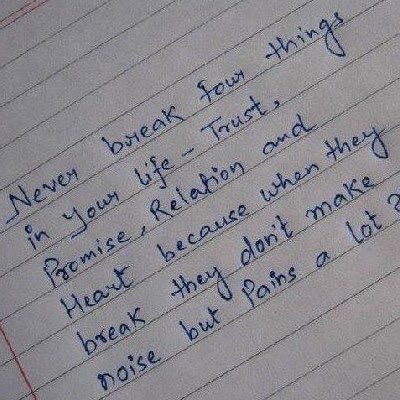 Never break four things
in your life - Trust,
Promise, Relation and
Heart because when they
break they don't make
noise but Pains a lot